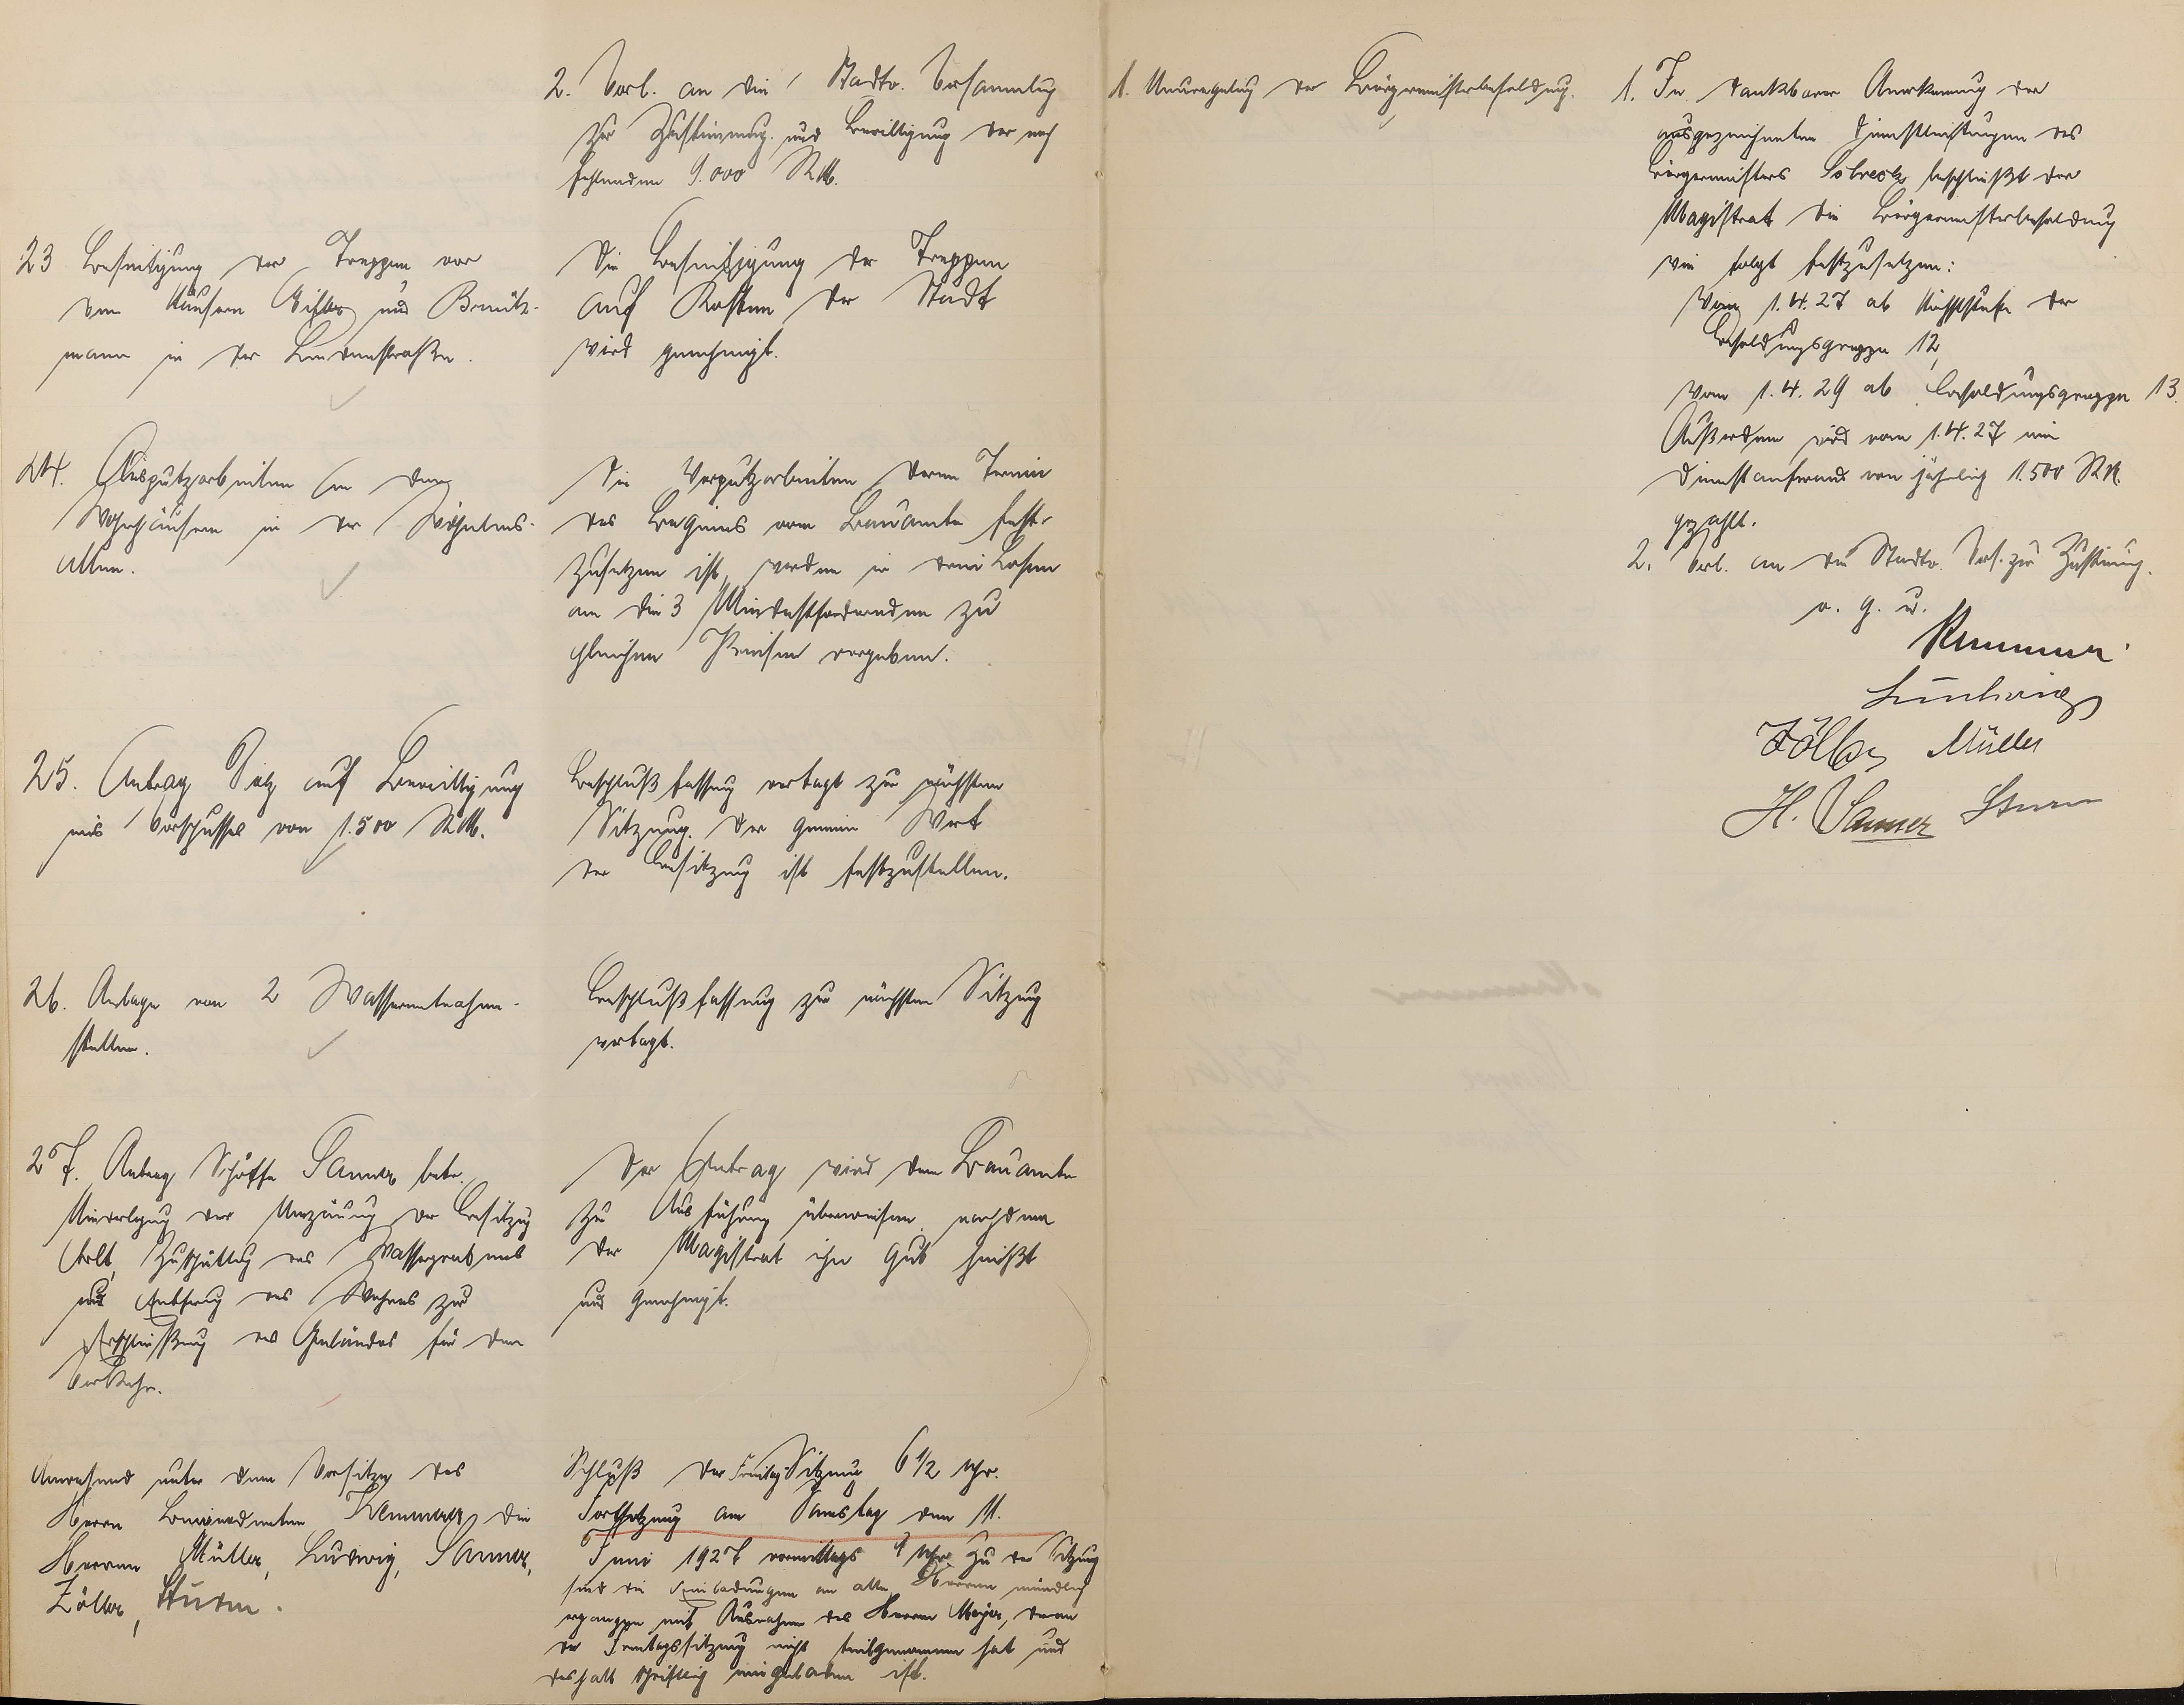 2. Vorl. an die Stadtv. Versammlung
zur Zustimmung und Bewilligung der noch
fehlenden 9.000 RM.
23 Beseitigung der Treppen vor
den Häusern und
mann in der Lindenstraße.
Die Beseitigung der Treppen
auf Kosten der Stadt
wird genehmigt.
24. Ausputzarbeiten an den
Wohnhäusern in der
allee.
Die Verputzarbeiten, deren Termin
des Beginns vom Bauamte fest-
zusetzen ist, werden in drei Losen
an die 3 Mindestfordernden zu
gleichen Preisen vergeben.
25. Antrag auf Bewilligung
eines Vorschusses von 1.500 RM.
Beschlußfassung vertagt zur nächsten
Sitzung. Der gemeine Wert
der Besitzung ist festzustellen.
26. Anlage von 2 Wasserentnahme-
stellen.
Beschlußfassung zur nächsten Sitzung
vertagt.
27. Antrag Schöffe Sanner betr.
Niederlegung der Umzäunung der Besitzung
Zuschüttung des Wassergrabens
und Entfernung des Wehres zur
Erschließung des Geländes für den
Verkehr.
Der Antrag wird dem Bauamte
zur Ausführung überwiesen, nachdem
der Magistrat ihn gut heißt
und genehmigt.
Anwesend unter dem Vorsitze des
Herrn Beigeordneten Kemmer die
Herren Müller, Ludwig, Sanner,
Zöller, Sturm.
Schluß der Freitag Sitzung 6 1/2 Uhr.
Fortsetzung am Samstag den 11.
Juni 1927 vormittags 9 Uhr. Zu der Sitzung
sind die Einladungen an alle Herren mündlich
ergangen mit Ausnahme des Herrn Meyer, der an
der Freitagssitzung nicht teilgenommen hat und
deshalb schriftlich eingeladen ist.
1. Neuregelung der Bürgermeisterbesoldung.
1. In dankbarer Anerkennung der
ausgezeichneten Dienstleistungen des
Bürgermeisters beschließt der
Magistrat die Bürgermeisterbesoldung
wie folgt festzusetzen:
Vom 1.4.27 ab Höchststufe der
Besoldungsgruppe 12,
Vom 1.4.29 ab Besoldungsgruppe 13.
Außerdem wird vom 1.4.27 ein
Dienstaufwand von jährlich 1.500 RM.
gezahlt.
2. Vorl. an die Stadtv. Vers. zur Zustimmung.
v. g. u.
Kemmer
Ludwig
Zöller Müller
H. Sanner Sturm